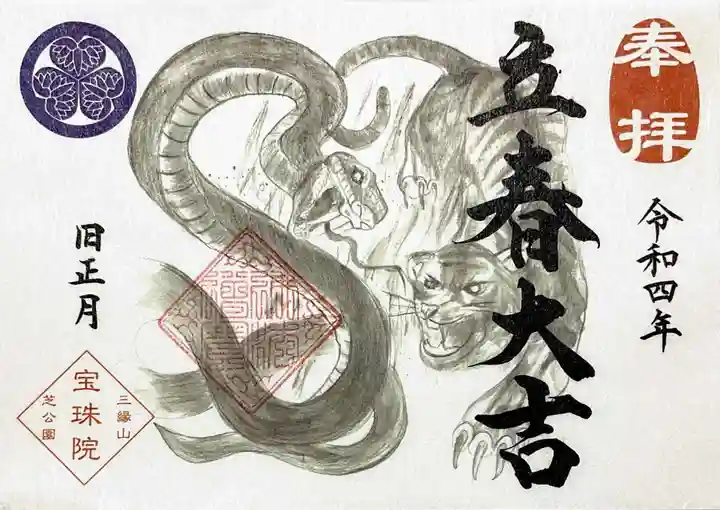 奉拝
令和四年
立春大吉
旧正月
三縁山
宝珠院
芝公園